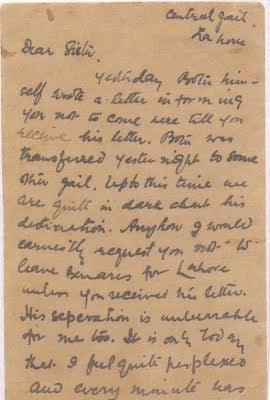 Central Jail,
Lahore
Dear Sister,
Yesterday Botu him-
self wrote a letter informing
you not to come here till you
receive his letter. Botu was
transferred yester night to some
other jail. Upto this time we
are quite in dark about his
destination. Anyhow I would
earnestly request you not to
leave Benares for Lahore
unless you received his letter.
His seperation is unbearable
for me too. It is only today
that I feel quite perplexed
and every minute has